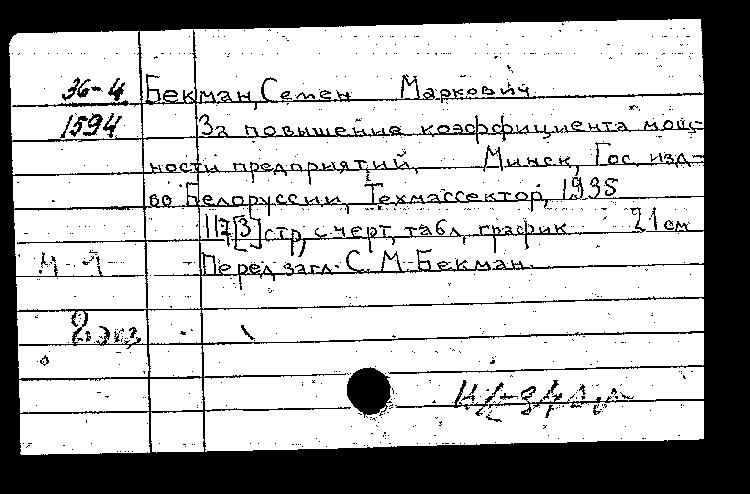 36-4 Бекман, Семен Маркович
1594 За повышение коэффициента мощ-
ности предприятий. Минск, Гос. изд-
во Белоруссии, Техмассектор, 1935
117[3] стр, с черт, табл, график 21 см
Перед загл. С. М. Бекман.
2 экз